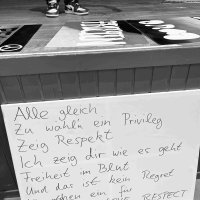 Alle gleich
Zu wähl'n ein Privileg
Zeig Respekt
Ich zeig dir wie es geht
Freiheit im Blut
Und das ist kein Regret
ein für
RESPECT